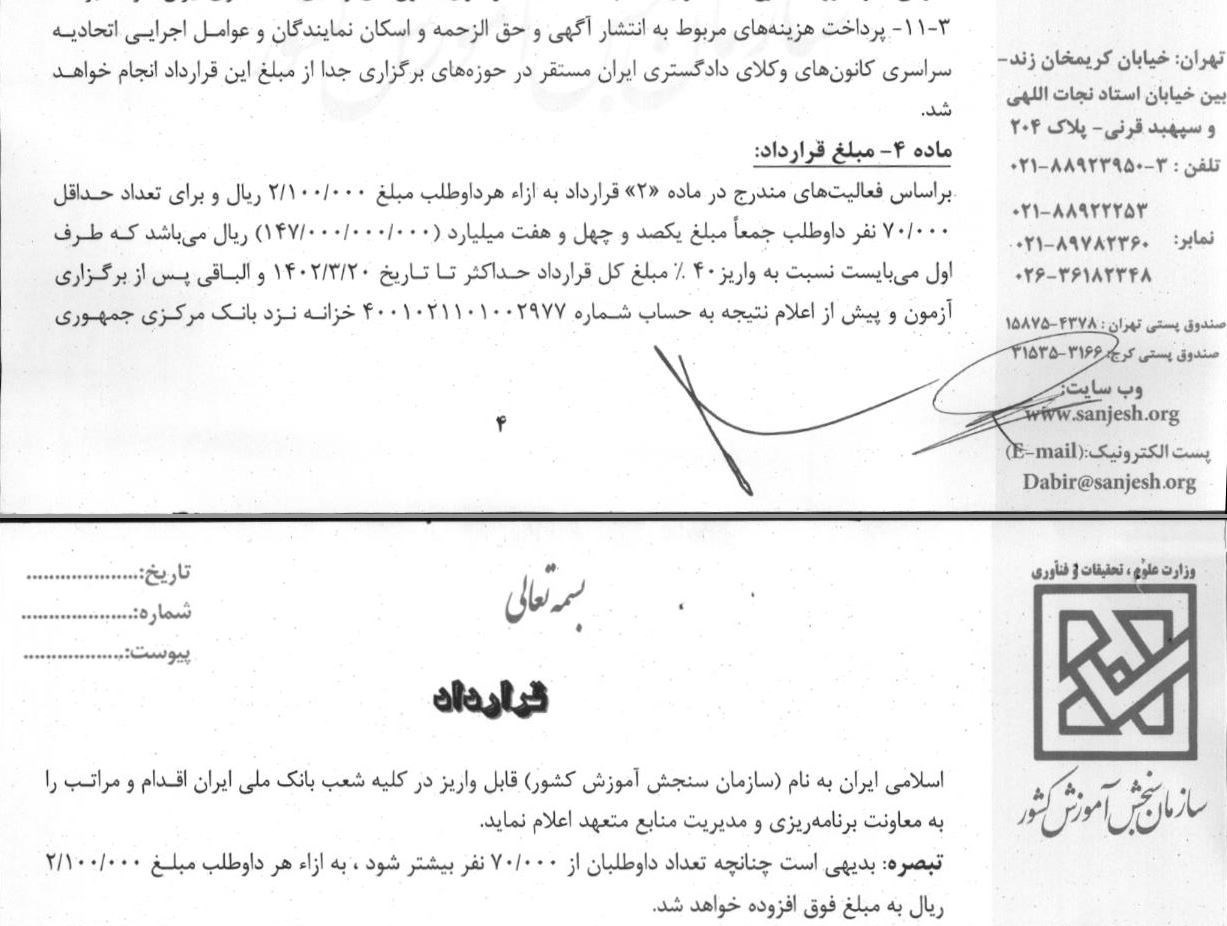 ۱۱-۳- پرداخت هزینه‌های مربوط به انتشار آگهی و حق الزحمه و اسکان نمایندگان و عوامل اجرایی اتحادیه
سراسری کانون‌های وکلای دادگستری ایران مستقر در حوزه‌های برگزاری جدا از مبلغ این قرارداد انجام خواهد
شد.
ماده ۴- مبلغ قرارداد:
براساس فعالیت‌های مندرج در ماده «۲» قرارداد به ازاء هرداوطلب مبلغ ۲/۱۰۰/۰۰۰ ریال و برای تعداد حداقل
۷۰/۰۰۰ نفر داوطلب جمعاً مبلغ یکصد و چهل و هفت میلیارد (۱۴۷/۰۰۰/۰۰۰/۰۰۰) ریال می‌باشد که طرف
اول می‌بایست نسبت به واریز ۴۰ ٪ مبلغ کل قرارداد حداکثر تا تاریخ ۱۴۰۲/۳/۲۰ و الباقی پس از برگزاری
آزمون و پیش از اعلام نتیجه به حساب شماره ۴۰۰۱۰۲۱۱۰۱۰۰۲۹۷۷ خزانه نزد بانک مرکزی جمهوری
۴
تهران: خیابان کریمخان زند-
بین خیابان استاد نجات اللهی
و سپهبد قرنی- پلاک ۲۰۴
تلفن : ۳-۸۸۹۲۳۹۵۰-۰۲۱
۰۲۱-۸۸۹۲۲۲۵۳
نمابر: ۰۲۱-۸۹۷۸۲۳۶۰
۰۲۶-۳۶۱۸۲۳۴۸
صندوق پستی تهران : ۴۳۷۸-۱۵۸۷۵
صندوق پستی کرج: ۳۱۶۶-۳۱۵۳۵
وب سایت:
www.sanjesh.org
پست الکترونیک:(E-mail)
Dabir@sanjesh.org
وزارت علوم ، تحقیقات و فنآوری
سازمان سنجش آموزش کشور
بسمه تعالی
تاریخ:....................
شماره:....................
پیوست:..................
قرارداد
اسلامی ایران به نام (سازمان سنجش آموزش کشور) قابل واریز در کلیه شعب بانک ملی ایران اقدام و مراتب را
به معاونت برنامه‌ریزی و مدیریت منابع متعهد اعلام نماید.
تبصره: بدیهی است چنانچه تعداد داوطلبان از ۷۰/۰۰۰ نفر بیشتر شود ، به ازاء هر داوطلب مبلغ ۲/۱۰۰/۰۰۰
ریال به مبلغ فوق افزوده خواهد شد.